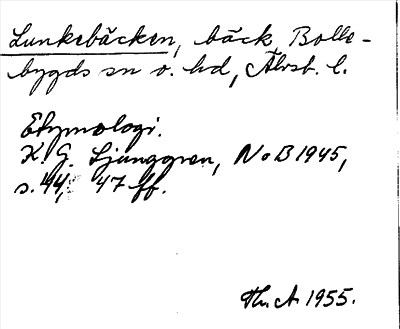 Lunkebäcken, bäck, Bolle-
bygds sn o. hd, Älvsb. l.
Etymologi.
K. G. Ljunggren, NoB 1945,
s. 44, 47 ff.
Th. A. 1955.